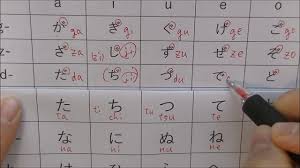 a i u e o
g- が ga ぎ gi ぐ gu げ ge ご go
ざ za じ ず zu ぜ ze ぞ zo
d- だ da (ぢ) づ du で ど
た ち つ て と
ta chi tu te
な に ぬ ね の
na ni nu ne